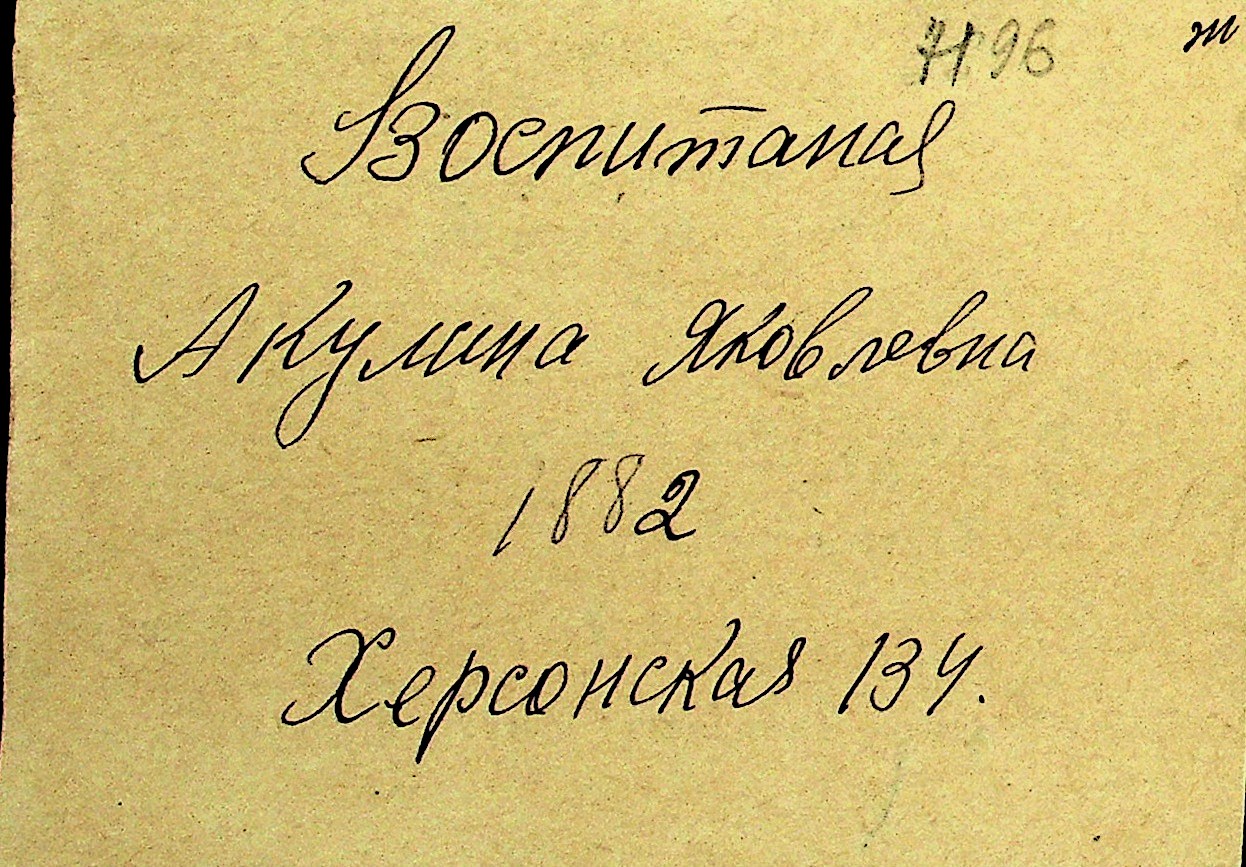 7196 ж
Воспитаная
Акулина Яковлевна
1882
Херсонская 134.